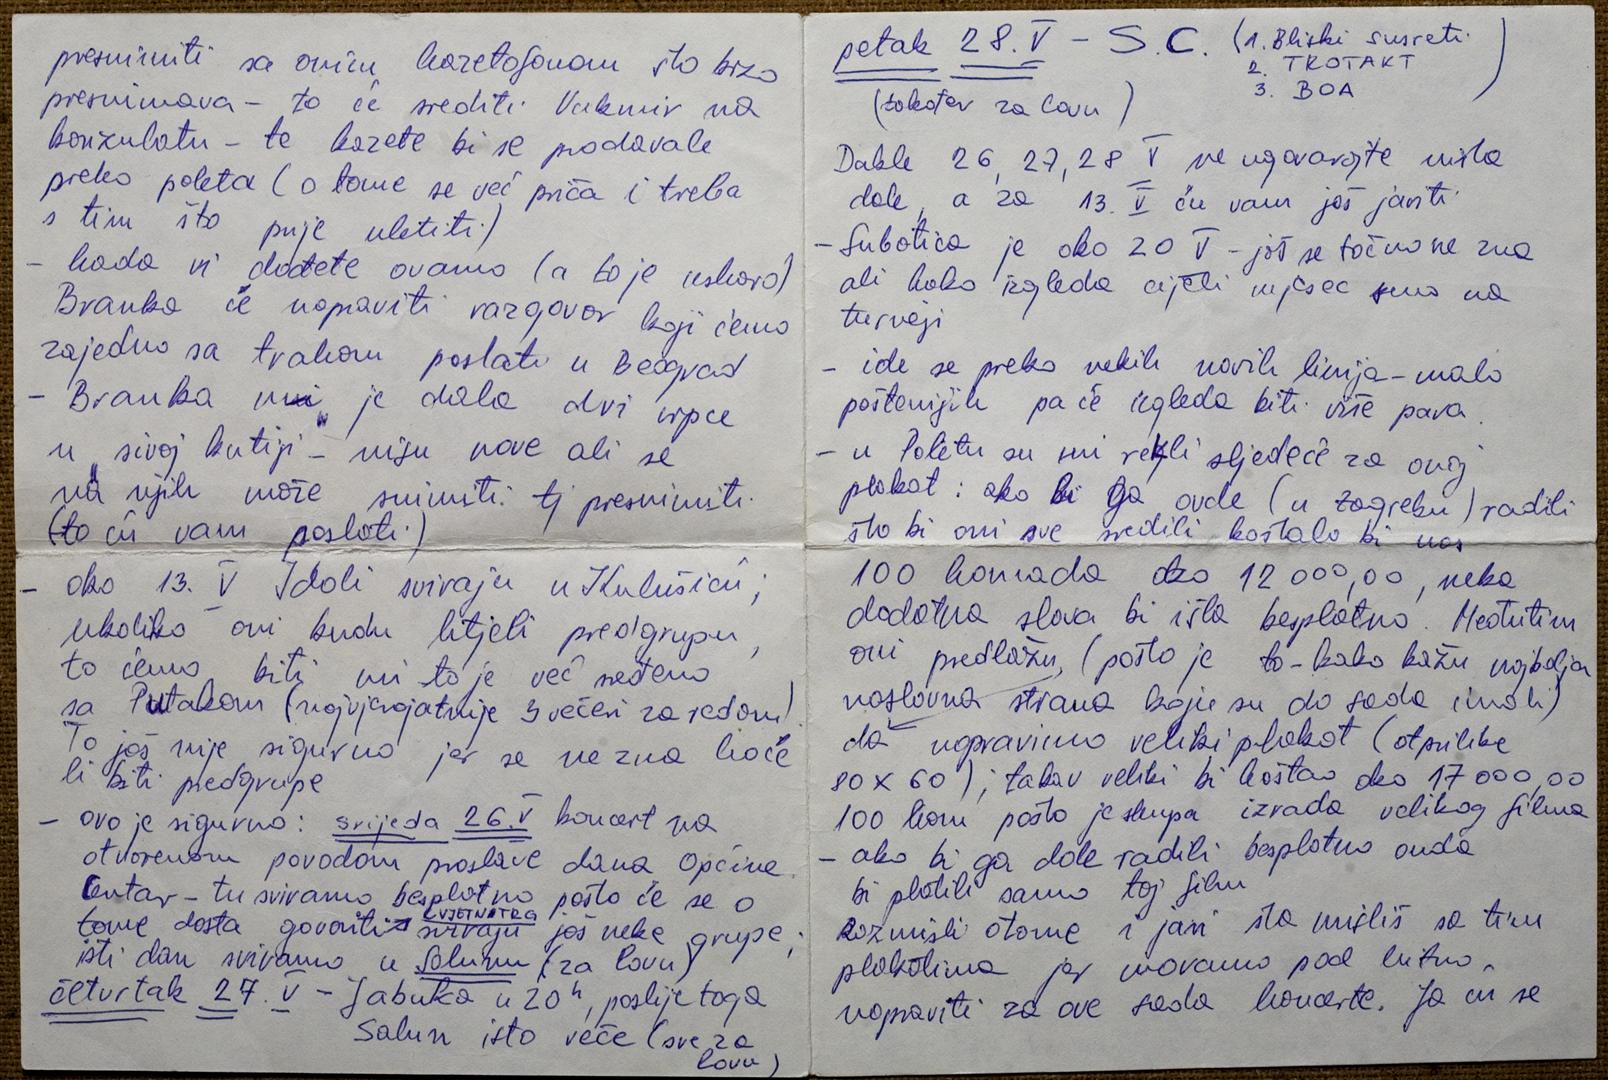 presnimiti sa onim kazetofonom što brzo
presnimava - to će srediti Vukmir na
konzulatu - te kazete bi se prodavale
preko poleta (o tome se već priča i treba
s tim što prije uletiti)
- kada vi dođete ovamo (a to je uskoro)
Branka će napraviti razgovor koji ćemo
zajedno sa trakom poslati u Beograd
- Branka mi je dala dvi vrpce
u sivoj kutiji - nisu nove ali se
na njih može snimiti tj presnimiti
(to ću vam poslati)
- oko 13. V Idoli sviraju u Kulušiću;
ukoliko oni budu htjeli predgrupu,
to ćemo biti mi to je već sređeno
sa Putakom (najvjerojatnije 3 večeri za redom)
To još nije sigurno jer se ne zna hoće
li biti predgrupe
- ovo je sigurno: srijeda 26. V koncert na
otvorenom povodom proslave dana Općine
Centar - tu sviramo besplatno pošto će se o
CVJETNI TRG
tome dosta govoriti sviraju još neke grupe;
isti dan sviramo u Salunu (za lovu)
četvrtak 27. V - Jabuka u 20h, poslije toga
Salun isto veče (sve za
lovu)
petak 28. V - S.C. (1. Bliski susreti
2. TROTAKT
3. BOA)
(također za lovu)
Dakle 26, 27, 28 V ne ugovarajte ništa
dole, a za 13. V ću vam još javiti
- Subotica je oko 20 V - još se točno ne zna
ali kako izgleda cijeli mjesec smo na
turneji
- ide se preko nekih novih linija - malo
poštenijih pa će izgleda biti više para.
- u Poletu su mi rekli sljedeće za onaj
plakat: ako bi ga ovde (u Zagrebu) radili
što bi oni sve sredili koštalo bi nas
100 komada oko 12 000,00, neka
dodatna slova bi išla besplatno. Međutim
oni predlažu, (pošto je to - kako kažu najbolja
naslovna strana koju su do sada imali)
da napravimo veliki plakat (otprilike
80 x 60); takav veliki bi koštao oko 17 000,00
100 kom pošto je skupa izrada velikog filma
- ako bi ga dole radili besplatno onda
bi platili samo taj film
Razmisli o tome i javi šta misliš sa tim
plakatima jer moramo pod hitno
napraviti za ove sada koncerte. Ja ću se